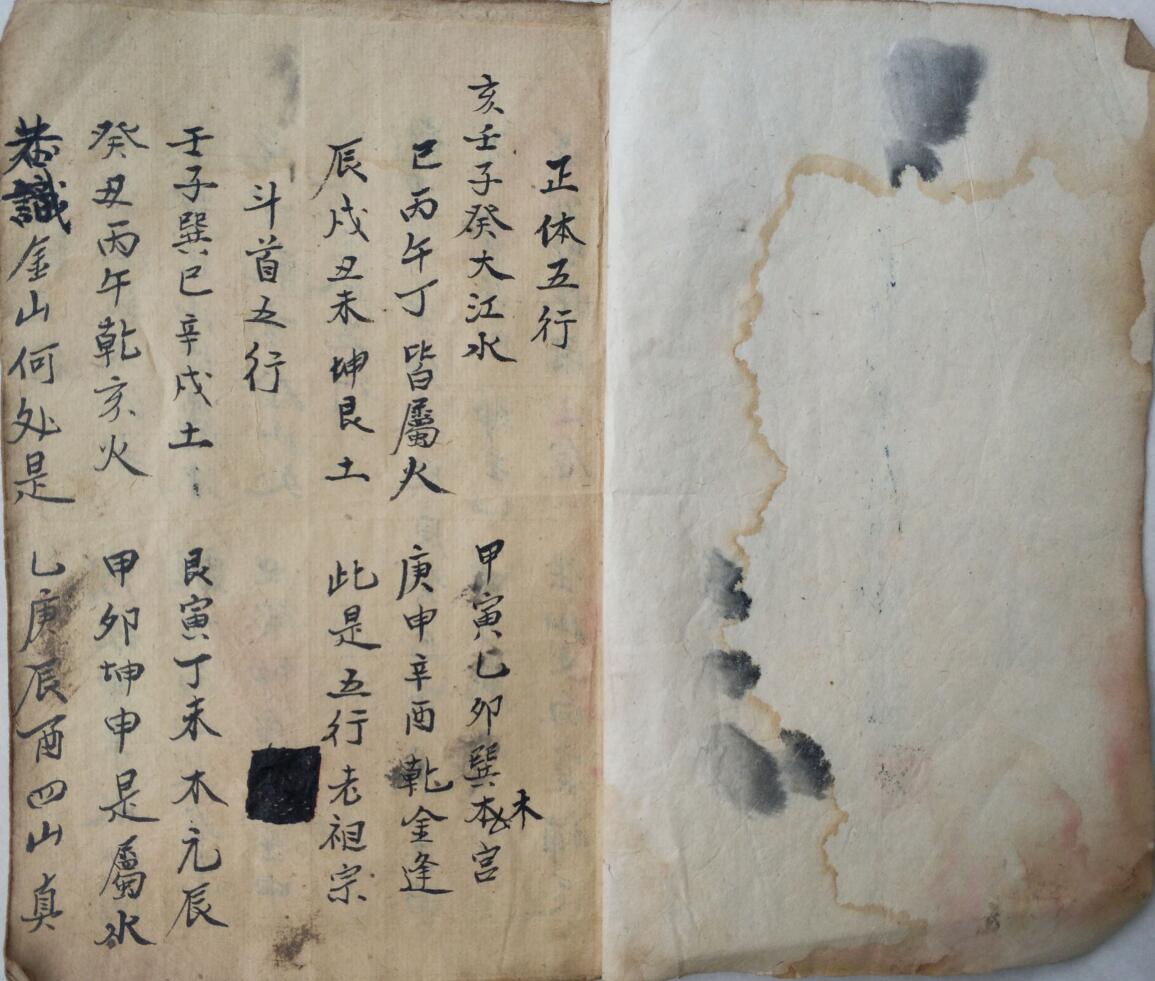 正体五行
亥壬子癸大江水 甲寅乙卯巽木宫
巳丙午丁皆屬火 庚申辛酉乾金逢
辰戌丑未坤艮土 此是五行老祖宗
斗首五行
壬子巽巳辛戌土 艮寅丁未木元辰
癸丑丙午乾亥火 甲卯坤申是屬水
若識金山何处是 乙庚辰酉四山真